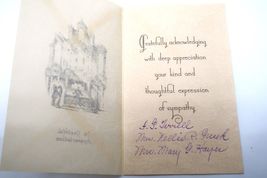 Gratefully acknowledging
with deep appreciation
your kind and
thoughtful expression
of sympathy.
Mrs. Nellie R.
Mrs. Mary G.
In Grateful
Appreciation